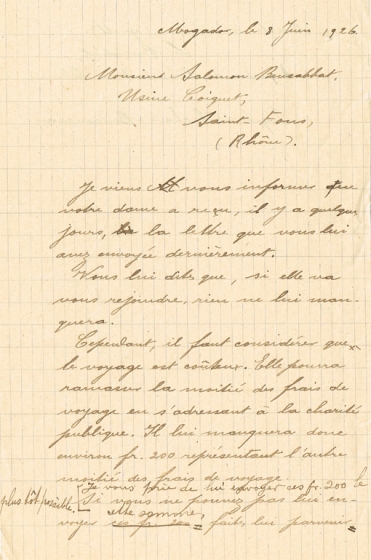 Mogador, le 8 Juin 1926
Monsieur Salomon Bensabbat.
Usine Coignet,
Saint-Fons,
(Rhône).
Je viens vous informer que
votre dame a reçu, il y a quelques
jours, la lettre que vous lui
avez envoyée dernièrement.
Vous lui dites que, si elle va
vous rejoindre, rien ne lui man-
quera.
Cependant, il faut considérer que
le voyage est coûteux. Elle pourra
ramasser la moitié des frais de
voyage en s'adressant à la charité
publique. Il lui manquera donc
environ fr. 200 représentant l'autre
moitié des frais de voyage.
Je vous prie de lui envoyer ces fr. 200 le
plus tôt possible.
Si vous ne pouvez pas lui en-
voyer cette somme,
ces fr. 200 faites lui parvenir